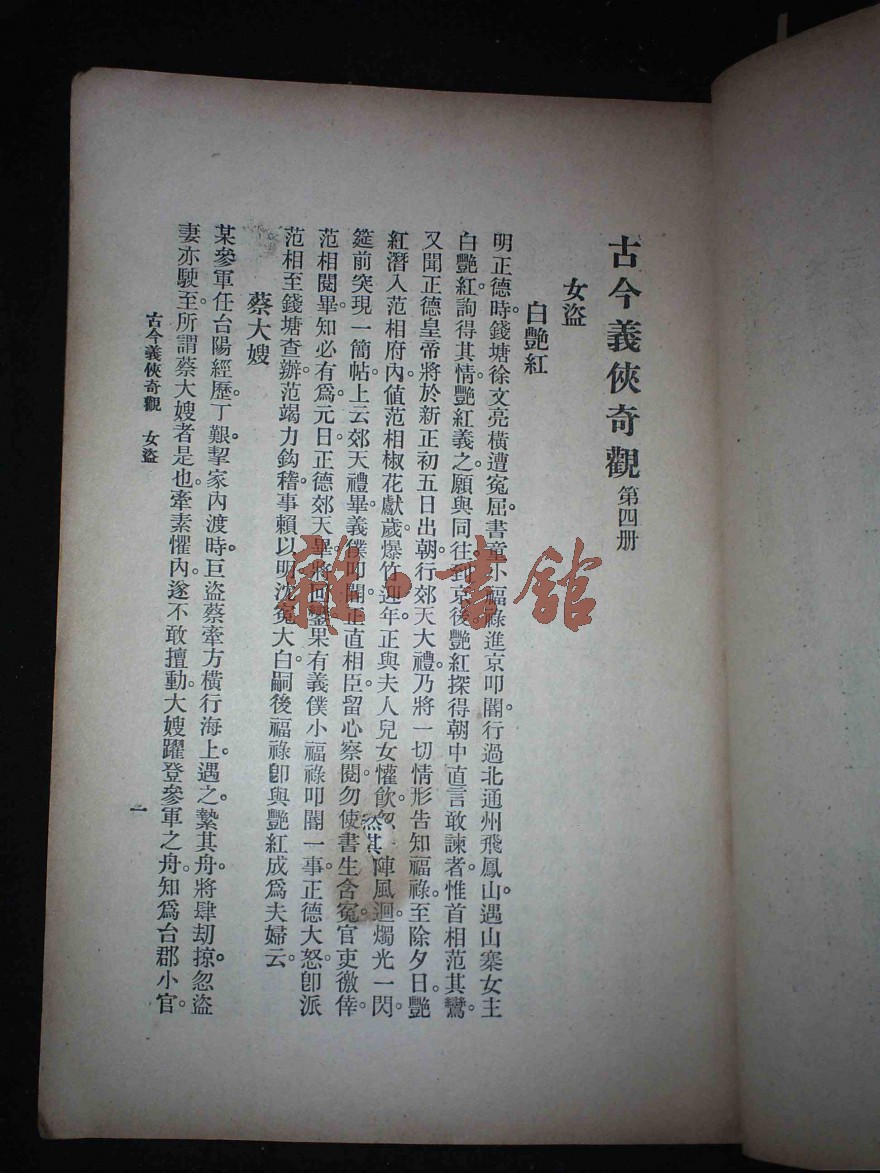 古今義俠奇觀 第四册
女盜
白艷紅
明正德時。錢塘徐文亮橫遭寃屈。書童小福祿進京叩閽。行過北通州飛鳳山。遇山寨女主
白艷紅。詢得其情。艷紅義之。願與同往。到京後。艷紅探得朝中直言敢諫者。惟首相范其鸞。
又聞正德皇帝將於新正初五日出朝。行郊天大禮。乃將一切情形告知福祿。至除夕日。艷
紅潛入范相府內。值范相椒花獻歲。爆竹迎年。正與夫人兒女懽飲。忽 陣風迴。燭光一閃。
筵前突現一簡帖。上云。郊天禮畢。義僕叩閽。正直相臣。留心察閱。勿使書生含寃。官吏徼倖。
范相閱畢。知必有爲。元日正德郊天畢。將回鑾。果有義僕小福祿叩閽一事。正德大怒。卽派
范相至錢塘查辦。范竭力鈎稽。事賴以明。沈寃大白。嗣後福祿卽與艷紅成爲夫婦云。
蔡大嫂
某參軍任台陽經歷。丁艱挈家內渡時。巨盜蔡牽方橫行海上。遇之。縶其舟。將肆劫掠。忽盜
妻亦駛至。所謂蔡大嫂者是也。牽素懼內。遂不敢擅動。大嫂躍登參軍之舟。知爲台郡小官。
古今義俠奇觀 女盜
一
雜·書館